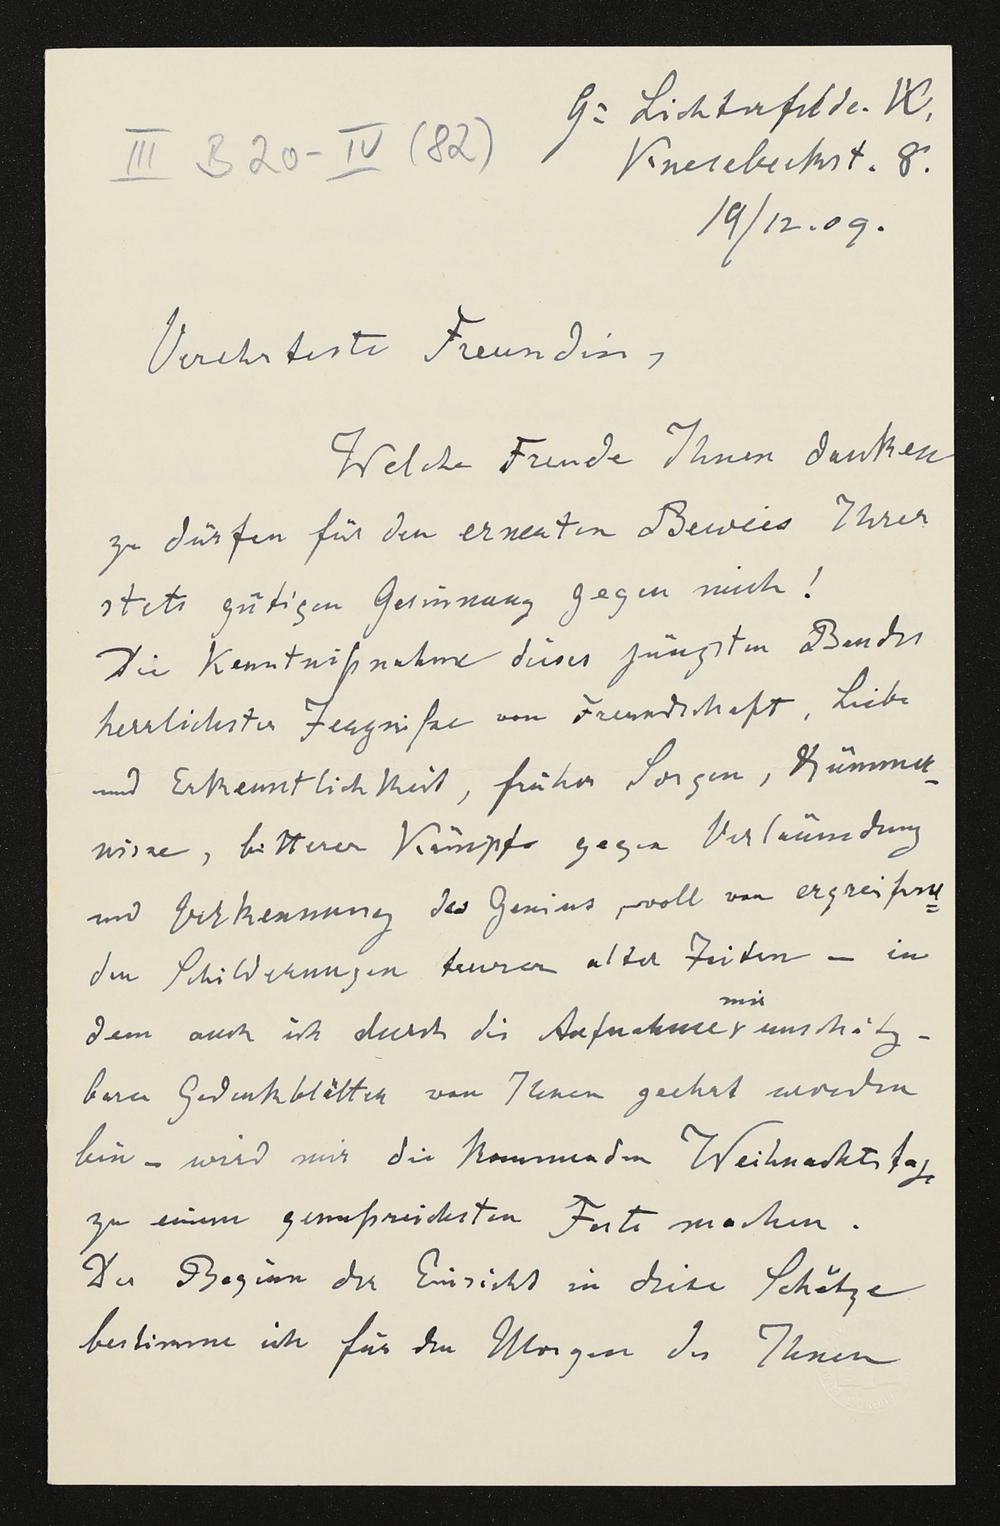 G= Lichterfelde. W.
III B 20-IV (82)
Knesebeckst. 8.
19/12.09.
Verehrteste Freundin,
Welche Freude Ihnen danken
zu dürfen für den erneuten Beweis Ihrer
stets gütigen Gesinnung gegen mich!
Die Kenntnißnahme dieses jüngsten Bandes
herrlichster Zeugniße von Freundschaft, Liebe
und Erkenntlichkeit, früher Sorgen, Kümmer-
nisse, bitterer Kämpfe gegen Verläumdung
und Verkennung des Genius, voll von ergreifen=
den Schilderungen teurer alter Zeiten – in
dem auch ich durch die Aufnahme mir unschätz-
barer Gedenkblätter von Ihnen geehrt worden
bin – wird mir die kommenden Weihnachtstage
zu einem genußreichsten Feste machen.
Den Beginn der Einsicht in diese Schätze
bestimme ich für den Morgen des Ihnen